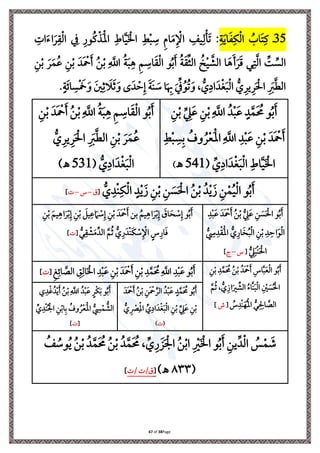 35. كِتَابُ الْكِفَايَةِ: تَأْلِيفِ الْإِمَامِ سِبْطِ الْخَيَّاطِ الْمَذْكُورِ فِي الْقِرَاءَاتِ
السِّتِّ الَّتِي قَرَأَهَا الشَّيْخُ الثِّقَةُ أَبُو الْقَاسِمِ هِبَةُ اللَّهِ بْنُ أَحْمَدَ بْنِ عُمَرَ بْنِ
الطَّبَرِ الْحَرِيرِيُّ الْبَغْدَادِيُّ، وَتُوُفِّيَ بِهَا سَنَةَ إِحْدَى وَثَلَاثِينَ وَخَمْسِمِائَةٍ.
أَبُو مُحَمَّدٍ عَبْدُ اللَّهِ بْنِ عَلِيِّ بْنِ
أَحْمَدَ بْنِ عَبْدِ اللَّهِ الْمَعْرُوفُ بِسِبْطِ
الْخَيَّاطِ الْبَغْدَادِيِّ (541 ه)
أَبُو الْقَاسِمِ هِبَةُ اللَّهِ بْنُ أَحْمَدَ بْنِ
عُمَرَ بْنِ الطَّبَرِ الْحَرِيرِيُّ
الْبَغْدَادِيُّ (531 ه)
أَبُو الْيُمْنِ زَيْدُ بْنُ الْحَسَنِ بْنِ زَيْدٍ الْكِنْدِيُّ [ق–س–ت]
أَبُو الْحَسَنِ عَلِيُّ بْنُ أَحْمَدَ عَبْدِ
الْوَاحِدِ بْنِ الْبُخَارِيِّ الْمَقْدِسِيُّ
الْحَنْبَلِيُّ [س –ج]
أَبُو إِسْحَاقَ إِبْرَاهِيمَ بن أَحْمَدَ بْنِ إِسْمَاعِيلَ بْنِ إِبْرَاهِيمَ بْنِ
فَارِسٍ الْإِسْكَنْدَرِيُّ ثُمَّ الدِّمَشْقِيُّ [ت]
أَبُو الْعَبَّاسِ أَحْمَدُ بْنُ مُحَمَّدِ بْنِ
الْحُسَيْنِ
الصَّالِحِيُّ الْمُهَنْدِسُ [ش]
أَبُو عَبْدِ اللَّهِ مُحَمَّدِ بْنِ أَحْمَدَ بْنِ عَبْدِ الْخَالِقِ الصَّائِغِ [ت]
أَبُو مُحَمَّدٍ عَبْدُ الرَّحْمَنِ بْنُ أَحْمَدَ
بْنِ عَلِيِّ بْنِ الْبَغْدَادِيِّ الْمِصْرِيُّ
(ت)
أَبُو بَكْرٍ عَبْدُ اللَّهِ بْنُ أَيْدُغْدِي
الشَّمْسِيُّ الْمَعْرُوفُ بِابْنِ الْجُنْدِيِّ
[ت]
شَمْسُ الدِّينِ أَبُو الْخَيْرِ ابْنُ الْجَزَرِيِّ، مُحَمَّدُ بْنُ مُحَمَّدُ بْنُ يُوسُفُ
(٨٣٣ ه) [ق/س/ت]
47 of 58Page